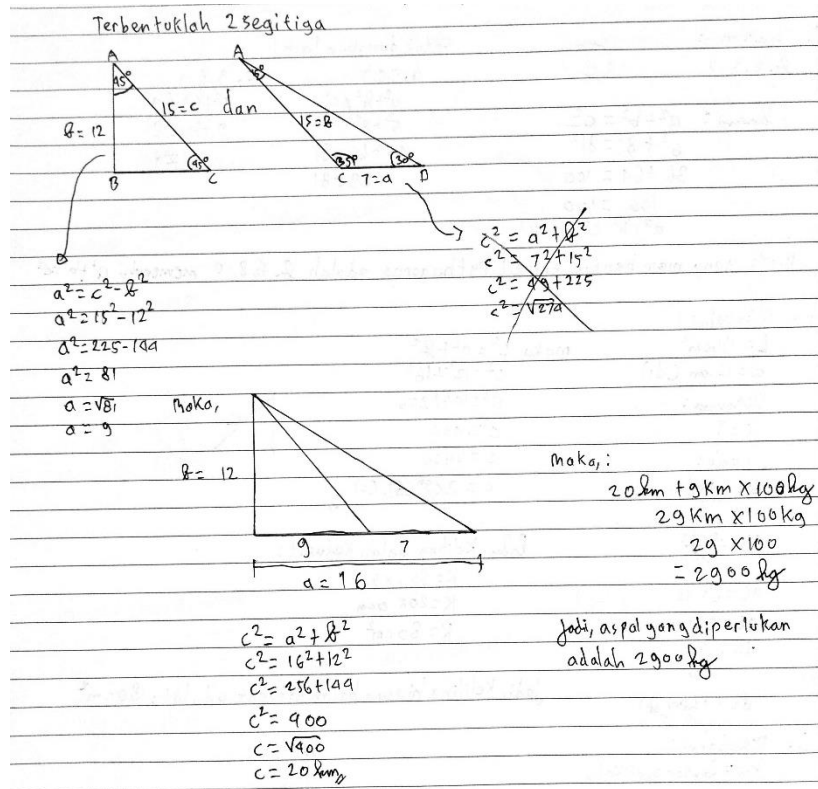 Terbentuklah 2 segitiga
A
45°
15=c
b=12
45°
B
C
dan
A
15°
15=b
135°
30°
C
7=a
D
c² = a² + b²
c² = 7² + 15²
c² = 49 + 225
c² = √274
a² = c² - b²
a² = 15² - 12²
a² = 225 - 144
a² = 81
a = √81
a = 9
Maka,
b = 12
9
7
a = 16
c² = a² + b²
c² = 16² + 12²
c² = 256 + 144
c² = 400
c = √400
c = 20 km
Maka, :
20 km + 9 km × 100 kg
29 km × 100 kg
29 × 100
= 2900 kg
Jadi, aspal yang diperlukan
adalah 2900 kg